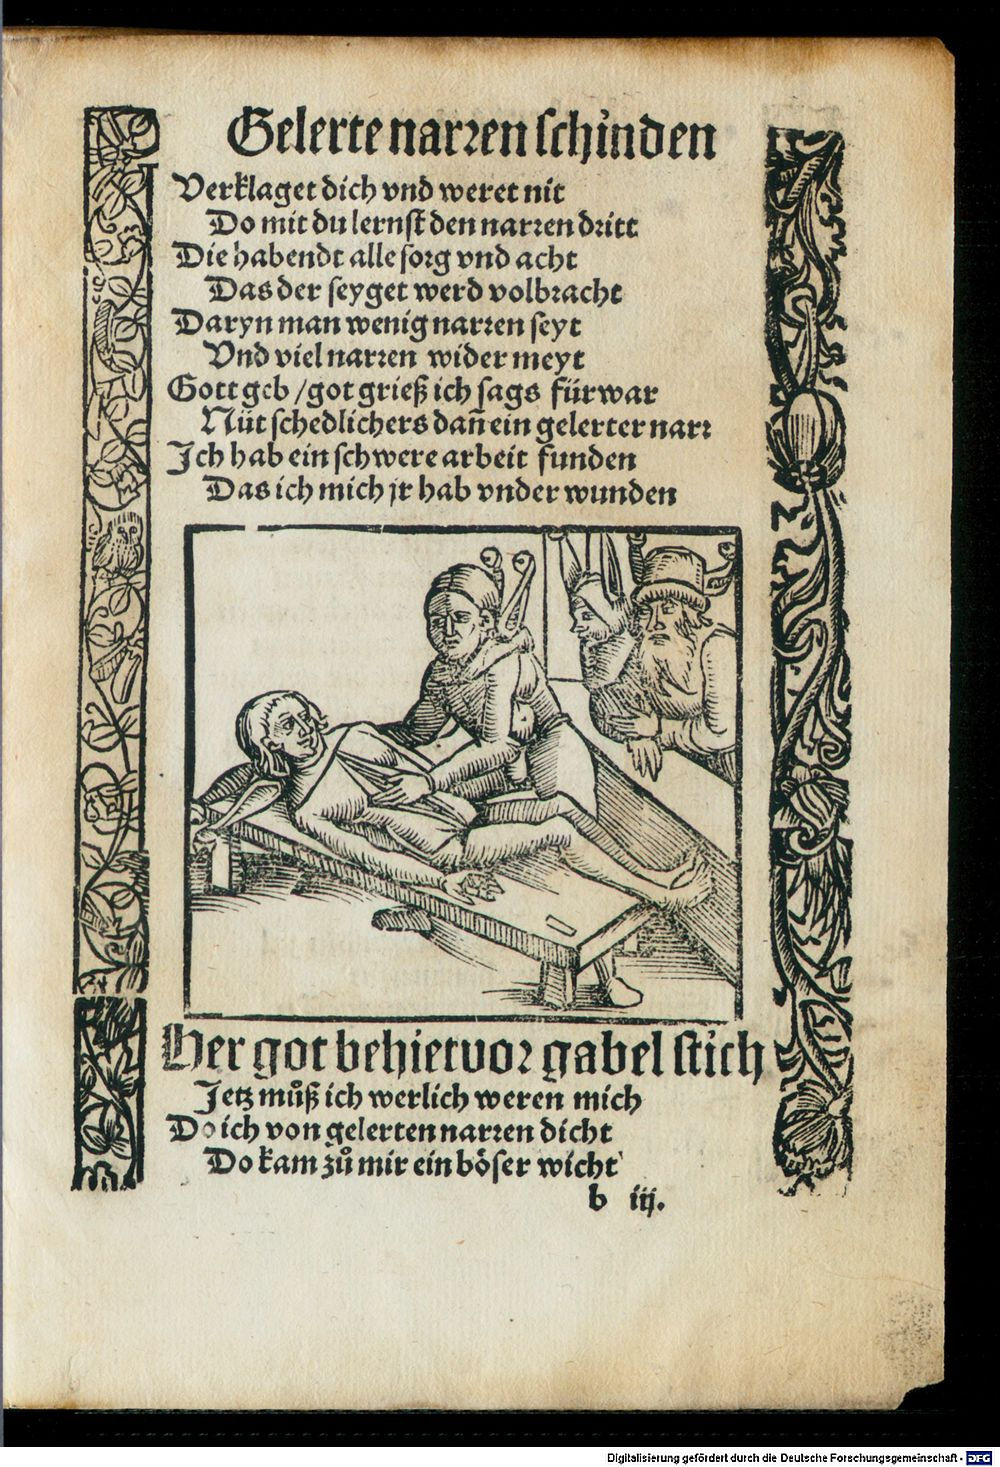 Gelerte narꝛen schinden
Verklaget dich vnd weret nit
Do mit du lernst den narꝛen dꝛitt
Die habendt alle soꝛg vnd acht
Das der seyget werd volbꝛacht
Daryn man wenig narꝛen seyt
Vnd viel narꝛen wider meyt
Gott geb / got grieß ich sags fürwar
Nüt schedlichers dañ ein gelerter narꝛ
Ich hab ein schwere arbeit funden
Das ich mich jr hab vnder wunden
Her got behiet voꝛ gabel stich
Jetz můß ich werlich weren mich
Do ich von gelerten narꝛen dicht
Do kam zů mir ein böser wicht
b iij.
Digitalisierung gefördert durch die Deutsche Forschungsgemeinschaft - DFG